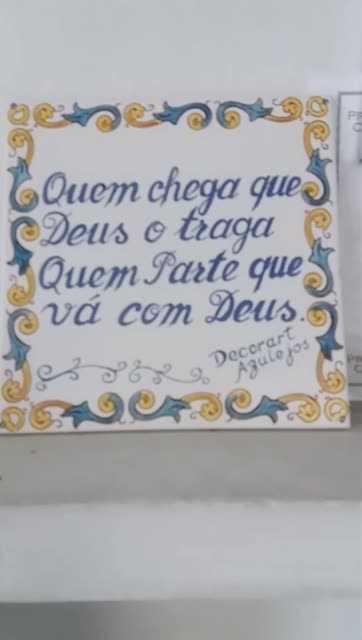 Quem chega que
Deus o traga
Quem Parte que
vá com Deus.
Decorart
Azulejos